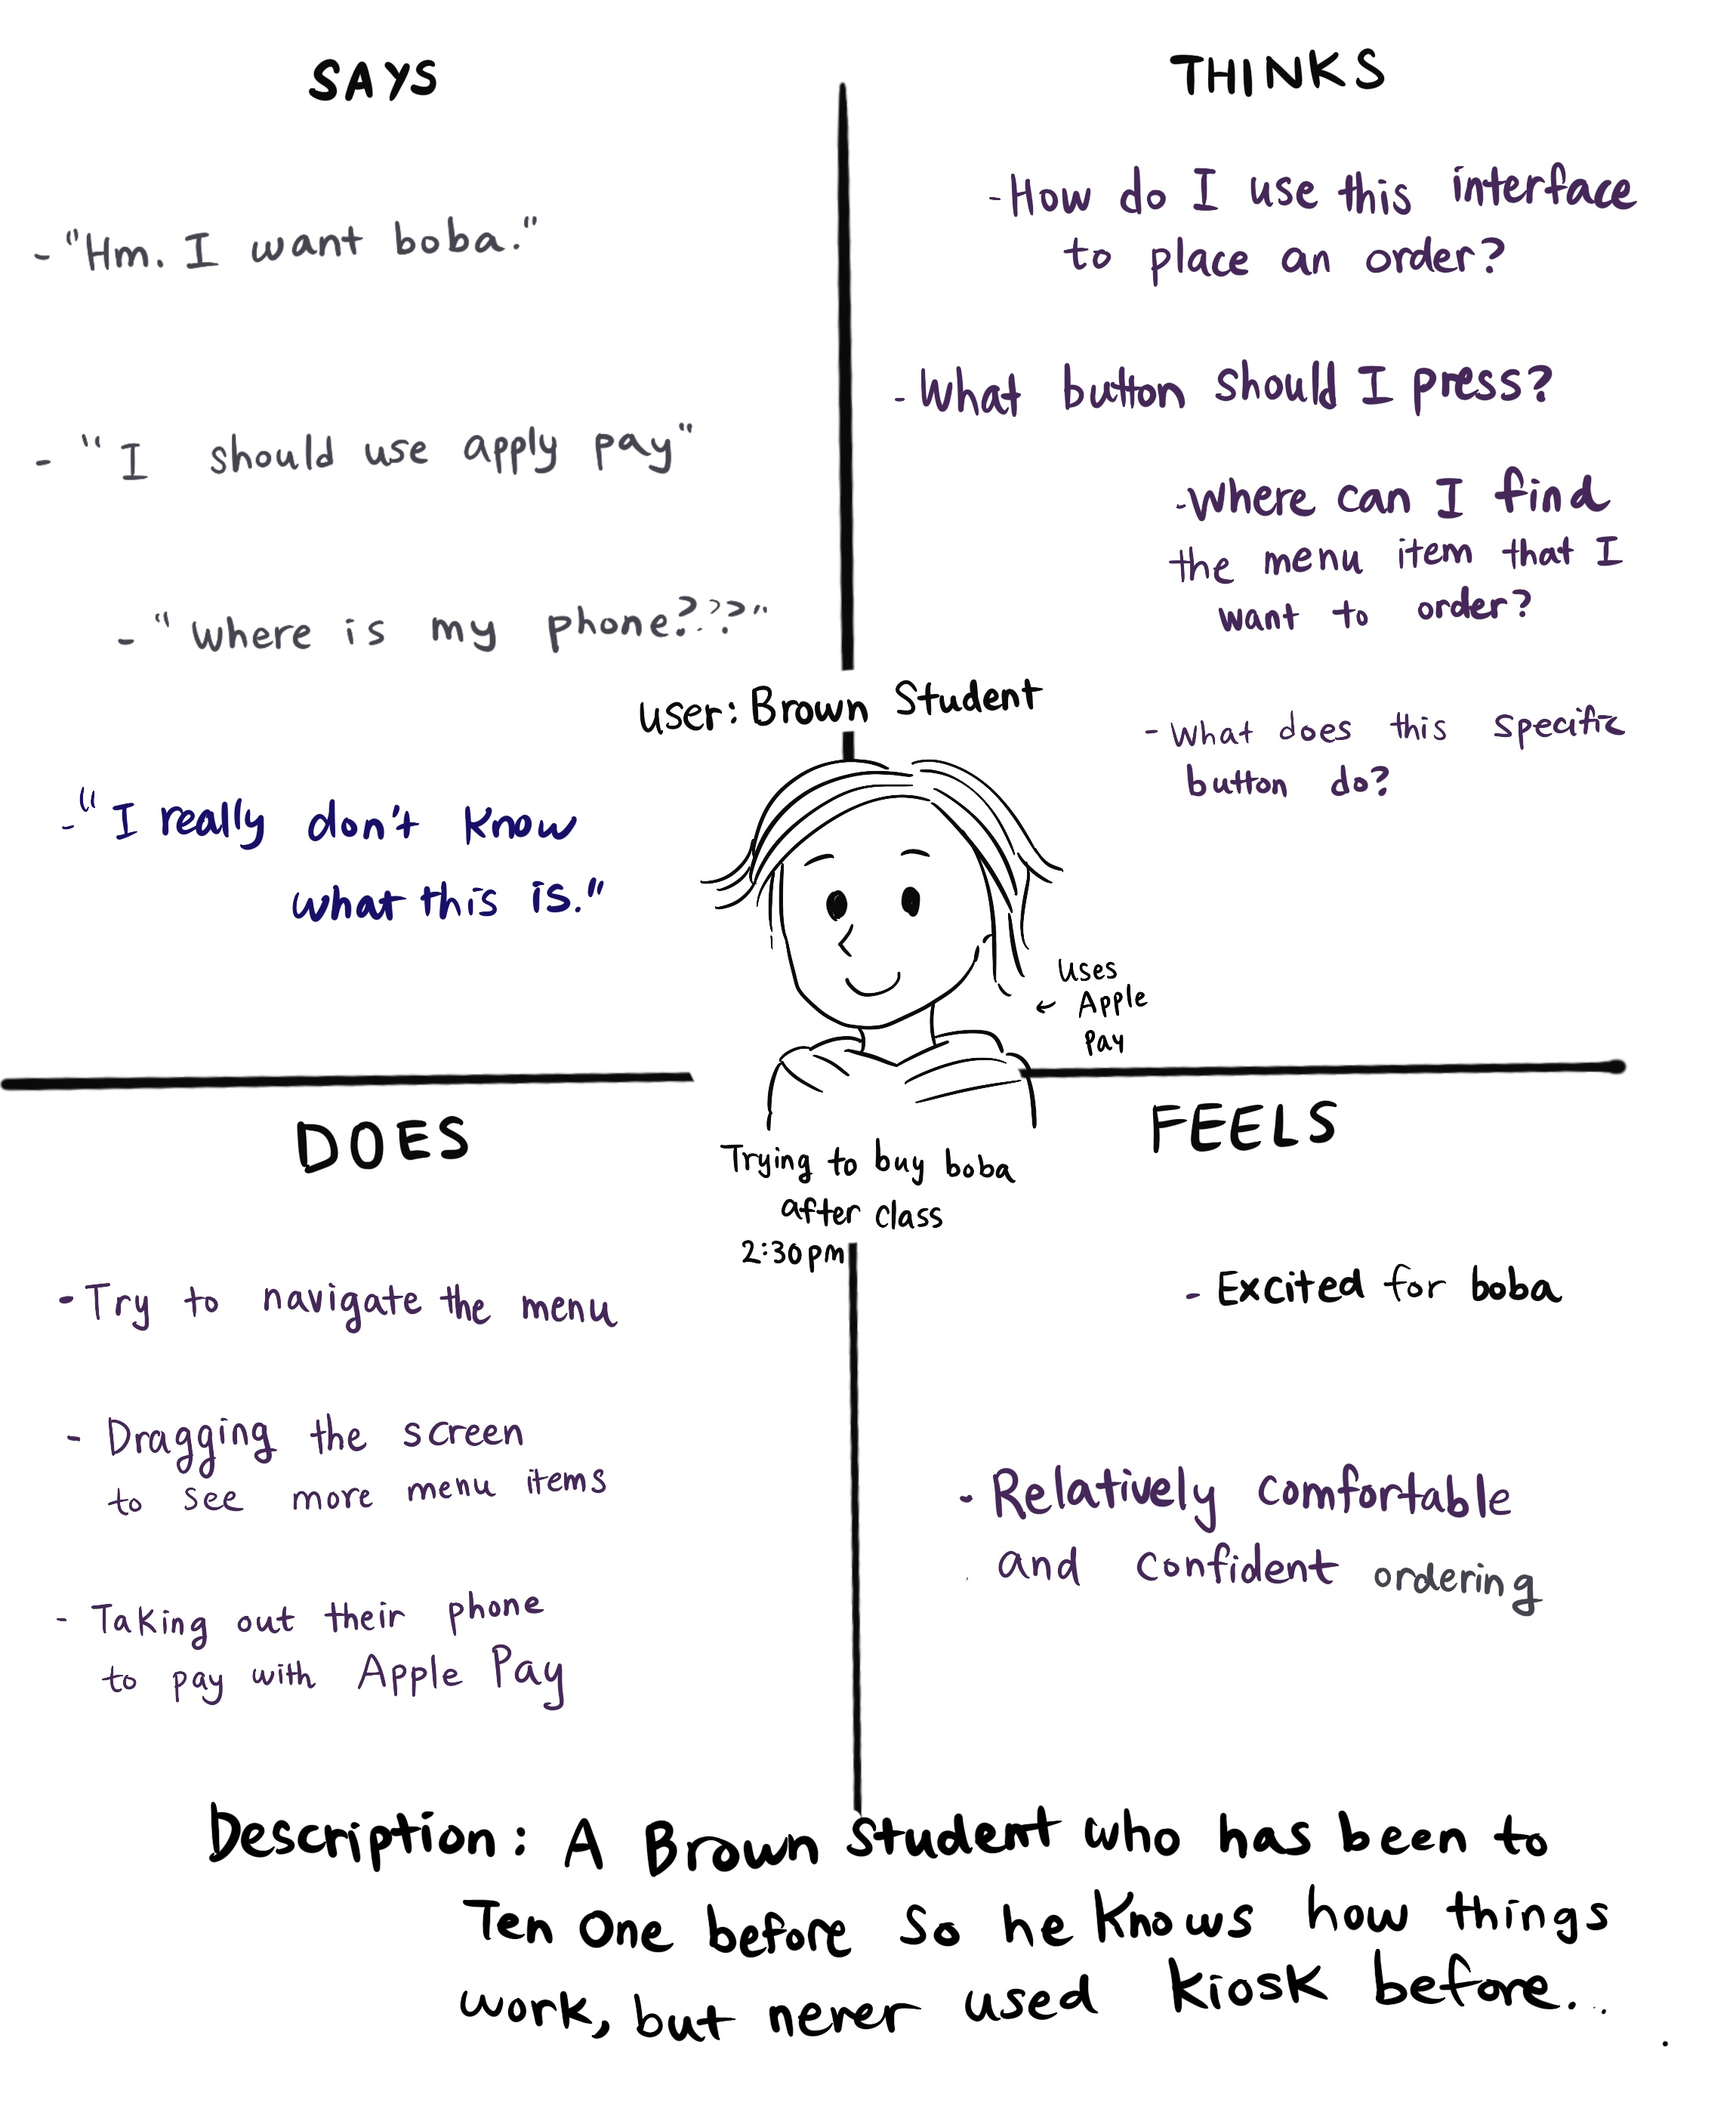 SAYS
- "Hm. I want boba."
- "I should use apply pay"
- "Where is my phone???"
- "I really don't know
what this is."
THINKS
- How do I use this interface
to place an order?
- What button should I press?
- Where can I find
the menu item that I
want to order?
- What does this specific
button do?
user: Brown Student
uses
← Apple
Pay
Trying to buy boba
after class
2:30pm
DOES
- Try to navigate the menu
- Dragging the screen
to see more menu items
- Taking out their phone
to pay with Apple Pay
FEELS
- Excited for boba
- Relatively comfortable
and confident ordering
Description: A Brown Student who has been to
Ten One before so he knows how things
work, but never used kiosk before...